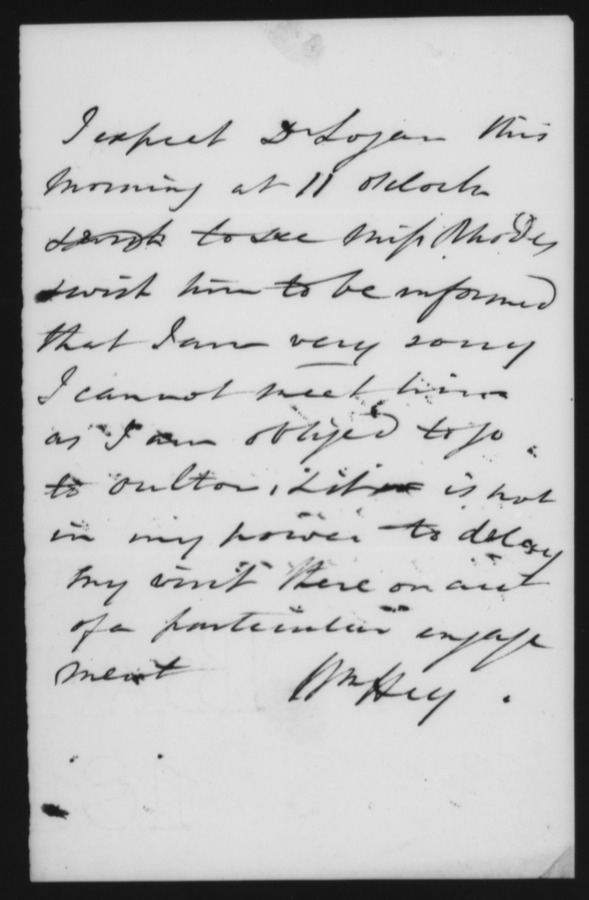 I expect Dr Logan this
morning at 11 oClock
to see Miss Rhodes
& wish him to be informed
that I am very sorry
I cannot meet him
as I am obliged to go
to Oulton, & it is not
in my power to delay
my visit there on acct
of a particular engage
ment Wm Hey.